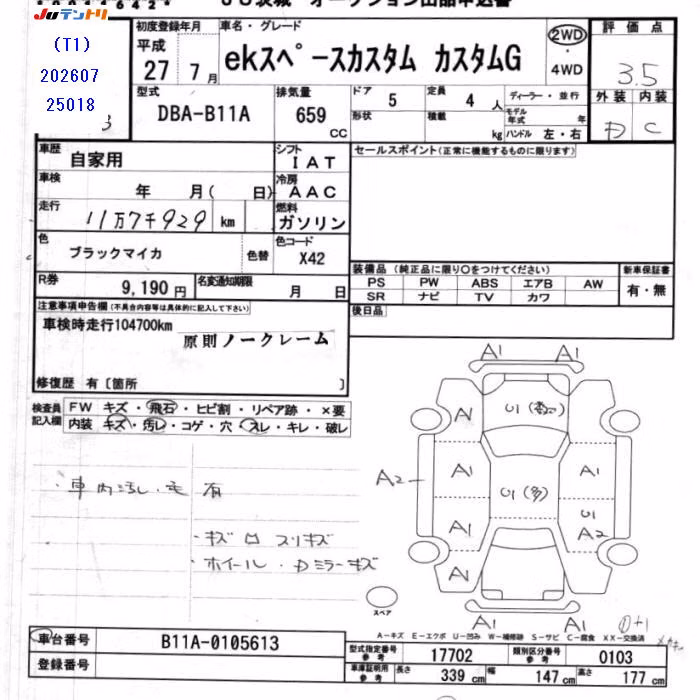 JU テントリ
(T1)
202607
25018
初度登録年月
平成
27 7月
車名・グレード
ekスペースカスタム カスタムG
2WD
・
4WD
評価点
3.5
外装 内装
D C
型式
DBA-B11A
排気量
659
CC
ドア 5
定員 4 人
形状
積載 kg
ディーラー・並行
モデル年式 年
ハンドル 左・右
車歴 自家用
シフト IAT
セールスポイント(正常に機能するものに限ります)
車検 年 月( 日)
冷房 AAC
走行 11万7千929 km
燃料 ガソリン
色 ブラックマイカ
色替
色コード X42
装備品 (純正品に限り〇をつけてください)
新車保証書
PS PW ABS エアB AW
有・無
SR ナビ TV カワ
R券 9,190円
名変通知期限 月 日
後日品
注意事項申告欄(不具合内容等は具体的に記入して下さい)
車検時走行104700km
原則ノークレーム
修復歴 有〔箇所 〕
検査員記入欄
FW キズ・飛石・ヒビ割・リペア跡・×要
内装 キズ・汚レ・コゲ・穴・スレ・キレ・破レ
・車内汚し・毛 有
・キズ ロ スリキズ
・ホイール・Dミラーキズ
A1 A1
A1
U1
A1 A1
A2
U1(多)
U1
A1 A2
A1
A1 A1
スペア
A-キズ E-エクボ U-凹み W-補修跡 S-サビ C-腐食 XX-交換済
車台番号 B11A-0105613
登録番号
型式指定番号 参考 17702
類別区分番号 参考 0103
車庫証明用 参考
長さ 339 cm
幅 147 cm
高さ 177 cm